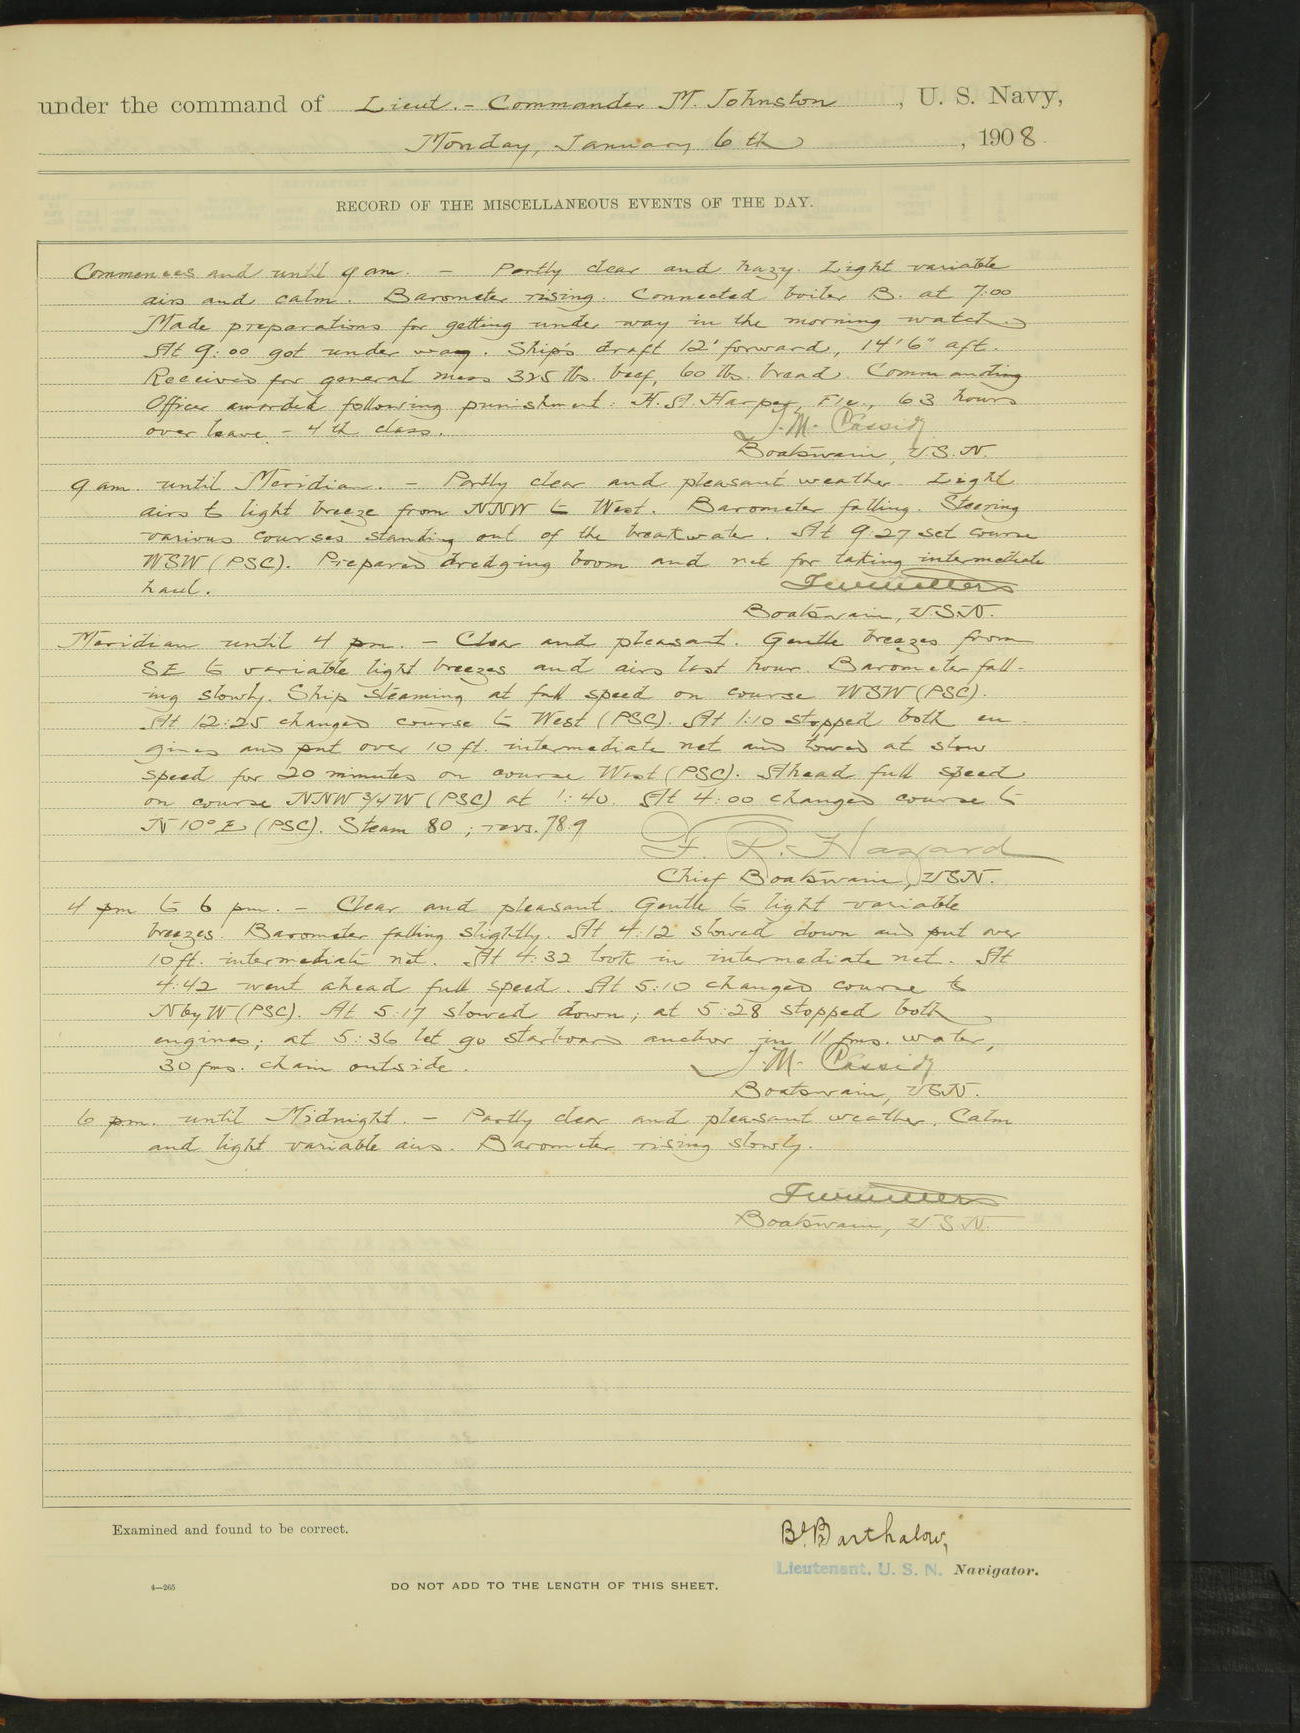 under the command of Lieut.-Commander M. Johnston, U. S. Navy,
Monday, January 6th, 1908
RECORD OF THE MISCELLANEOUS EVENTS OF THE DAY.
Commences and until 9 am. - Partly clear and hazy. Light variable
airs and calm. Barometer rising. Connected boiler B. at 7:00
Made preparations for getting under way in the morning watch.
At 9:00 got under way. Ship's draft 12' forward, 14'6" aft.
Received for general mess 325 lbs. beef, 60 lbs. bread. Commanding
Officer awarded following punishment: H. A. Harper, F1c., 63 hours
over leave - 4th class.
J. M. Cassidy
Boatswain, U.S.N.
9 am. until Meridian. - Partly clear and pleasant weather. Light
airs to light breeze from NNW to West. Barometer falling. Steering
various courses standing out of the breakwater. At 9:27 set course
WSW (PSC). Prepared dredging boom and net for taking intermediate
haul.
Boatswain, U.S.N.
Meridian until 4 pm. - Clear and pleasant. Gentle breezes from
SE to variable light breezes and airs last hour. Barometer fall-
ing slowly. Ship steaming at full speed on course WSW (PSC).
At 12:25 changed course to West (PSC). At 1:10 stopped both en-
gines and put over 10 ft. intermediate net and towed at slow
speed for 20 minutes on course West (PSC). Ahead full speed
on course NNW 3/4 W (PSC) at 1:40. At 4:00 changed course to
N 10° E (PSC). Steam 80; revs. 78.9
F. R. Hazard
Chief Boatswain, USN.
4 pm to 6 pm. - Clear and pleasant. Gentle to light variable
breezes. Barometer falling slightly. At 4:12 slowed down and put over
10 ft. intermediate net. At 4:32 took in intermediate net. At
4:42 went ahead full speed. At 5:10 changed course to
N by W (PSC). At 5:17 slowed down; at 5:28 stopped both
engines; at 5:36 let go starboard anchor in 11 fms. water,
30 fms. chain outside.
J. M. Cassidy
Boatswain, USN.
6 pm. until Midnight. - Partly clear and pleasant weather. Calm
and light variable airs. Barometer rising slowly.
Boatswain, USN.
Examined and found to be correct.
Barthalow,
Lieutenant, U. S. N. Navigator.
4—265
DO NOT ADD TO THE LENGTH OF THIS SHEET.